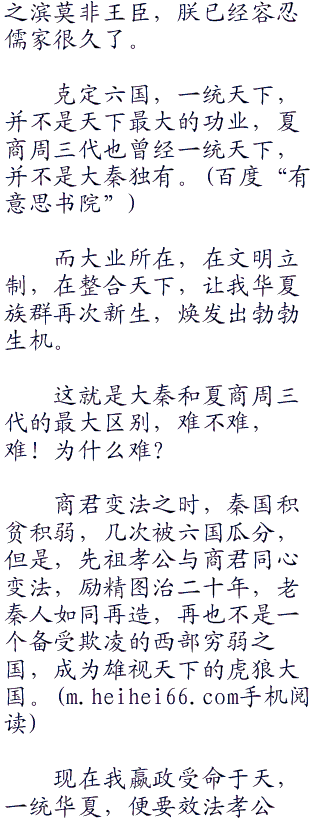 之滨莫非王臣，朕已经容忍
儒家很久了。
克定六国，一统天下，
并不是天下最大的功业，夏
商周三代也曾经一统天下，
并不是大秦独有。(百度“有
意思书院”)
而大业所在，在文明立
制，在整合天下，让我华夏
族群再次新生，焕发出勃勃
生机。
这就是大秦和夏商周三
代的最大区别，难不难，
难！为什么难？
商君变法之时，秦国积
贫积弱，几次被六国瓜分，
但是，先祖孝公与商君同心
变法，励精图治二十年，老
秦人如同再造，再也不是一
个备受欺凌的西部穷弱之
国，成为雄视天下的虎狼大
国。(m.heihei66.com手机阅
读)
现在我嬴政受命于天，
一统华夏，便要效法孝公